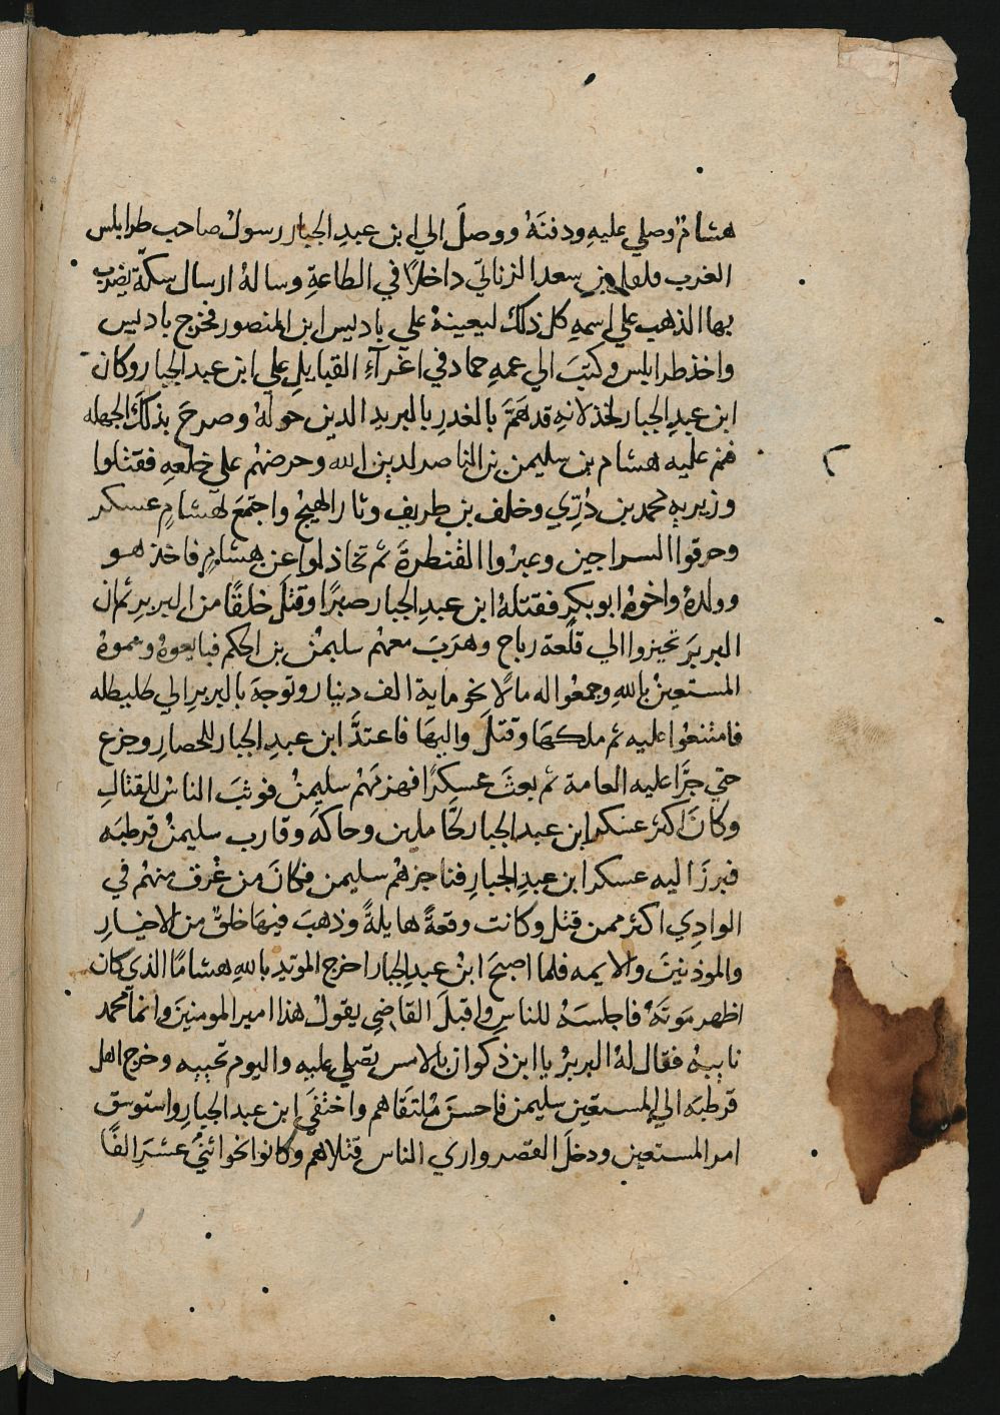 هشام وصلي عليهِ ودفنَهُ ووصلَ الي ابن عبدِ الجبار رسولُ صاحب طرابلس
الغرب فلفل بن سعد الزناتي داخلاً في الطاعةِ وسالهُ ارسال سكّة يضرب
بها الذهب علي اسمهِ كل ذلك ليعينهُ علي باديس ابن المنصور فخرج باديس
واخذ طرابلس وكتبَ الي عمهِ حماد في اغرآءِ القبايلِ علي ابن عبد الجبار وكان
ابن عبدِ الجبار لخذلانهِ قد همَّ بالغدرِ بالبربر الذين حولهُ وصرحَ بذلكَ الجهله
فنم عليه هشام بن سليمن بن الناصر لدين الله وحرضهُم علي خلعهِ فقتلوا
وزيريهِ محمد بن دُرِّي وخلف بن طريف وثار الهيجُ واجتمعَ لهشامٍ عسكر
وحرقوا السراجين وعبرُوا القنطرةَ ثم تخاذلوا عن هشامٍ فاخذ هو
وولدهُ واخوهُ ابو بكرٍ فقتلهُ ابن عبدِ الجبار صبرًا وقتلَ خلقًا من البربرِ ثم ان
البربرَ تحيزوا الي قلعة رباح وهربَ معهُم سليمنُ بن الحكم فبايعوهُ وسموهُ
المستعينُ باللهِ وجمعُوا له مالاً نحو ماية الف دينار وتوجهَ بالبربرِ الي طليطله
فامتنعُوا عليه ثم ملكهَا وقتلَ واليهَا فاعتدَّ ابن عبدِ الجبار للحصارِ وجزع
حتي جرَّا عليه العامة ثم بعثَ عسكرًا فهزمَهُم سليمنُ فوثبَ الناسُ للقتالِ
وكانَ اكثر عسكر ابن عبد الجبار لحّامين وحاكه وقارب سليمنُ قرطبَه
فبرزَ اليه عسكر ابن عبدِ الجبارِ فناجزهُم سليمن فكانَ من غُرق منهُم في
الوادِي اكثر ممن قتل وكانت وقعةً هايلةً وذهبَ فيهَا خلقٌ من الاخيارِ
والموذنينَ والايمه فلما اصبحَ ابنُ عبدِ الجبار اخرج المويد باللهِ هشامًا الذي كان
اظهر مَوتَهُ فاجلسَهُ للناس واقبلَ القاضِي يقولُ هذا امير المومنينَ وانما محمد
نايبهُ فقال لهُ البربرُ يا ابن ذكوان بالامس تصلي عليه واليوم تحييه وخرج اهل
قرطبه الي المستعين سليمن فاحسنَ مُلتقَاهم واختفَي ابن عبد الجبارِ واستوسق
امر المستعين ودخلَ القصر واري الناس قتلاهُم وكانوا نحو اثنَي عشرَ الفًا